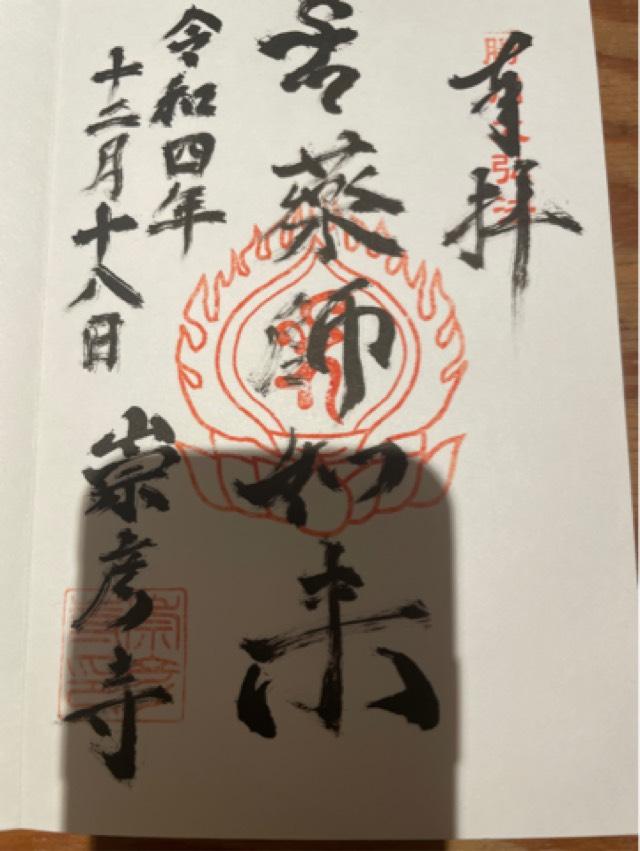 奉拝
薬師如来
令和四年
十二月十八日
崇彦寺